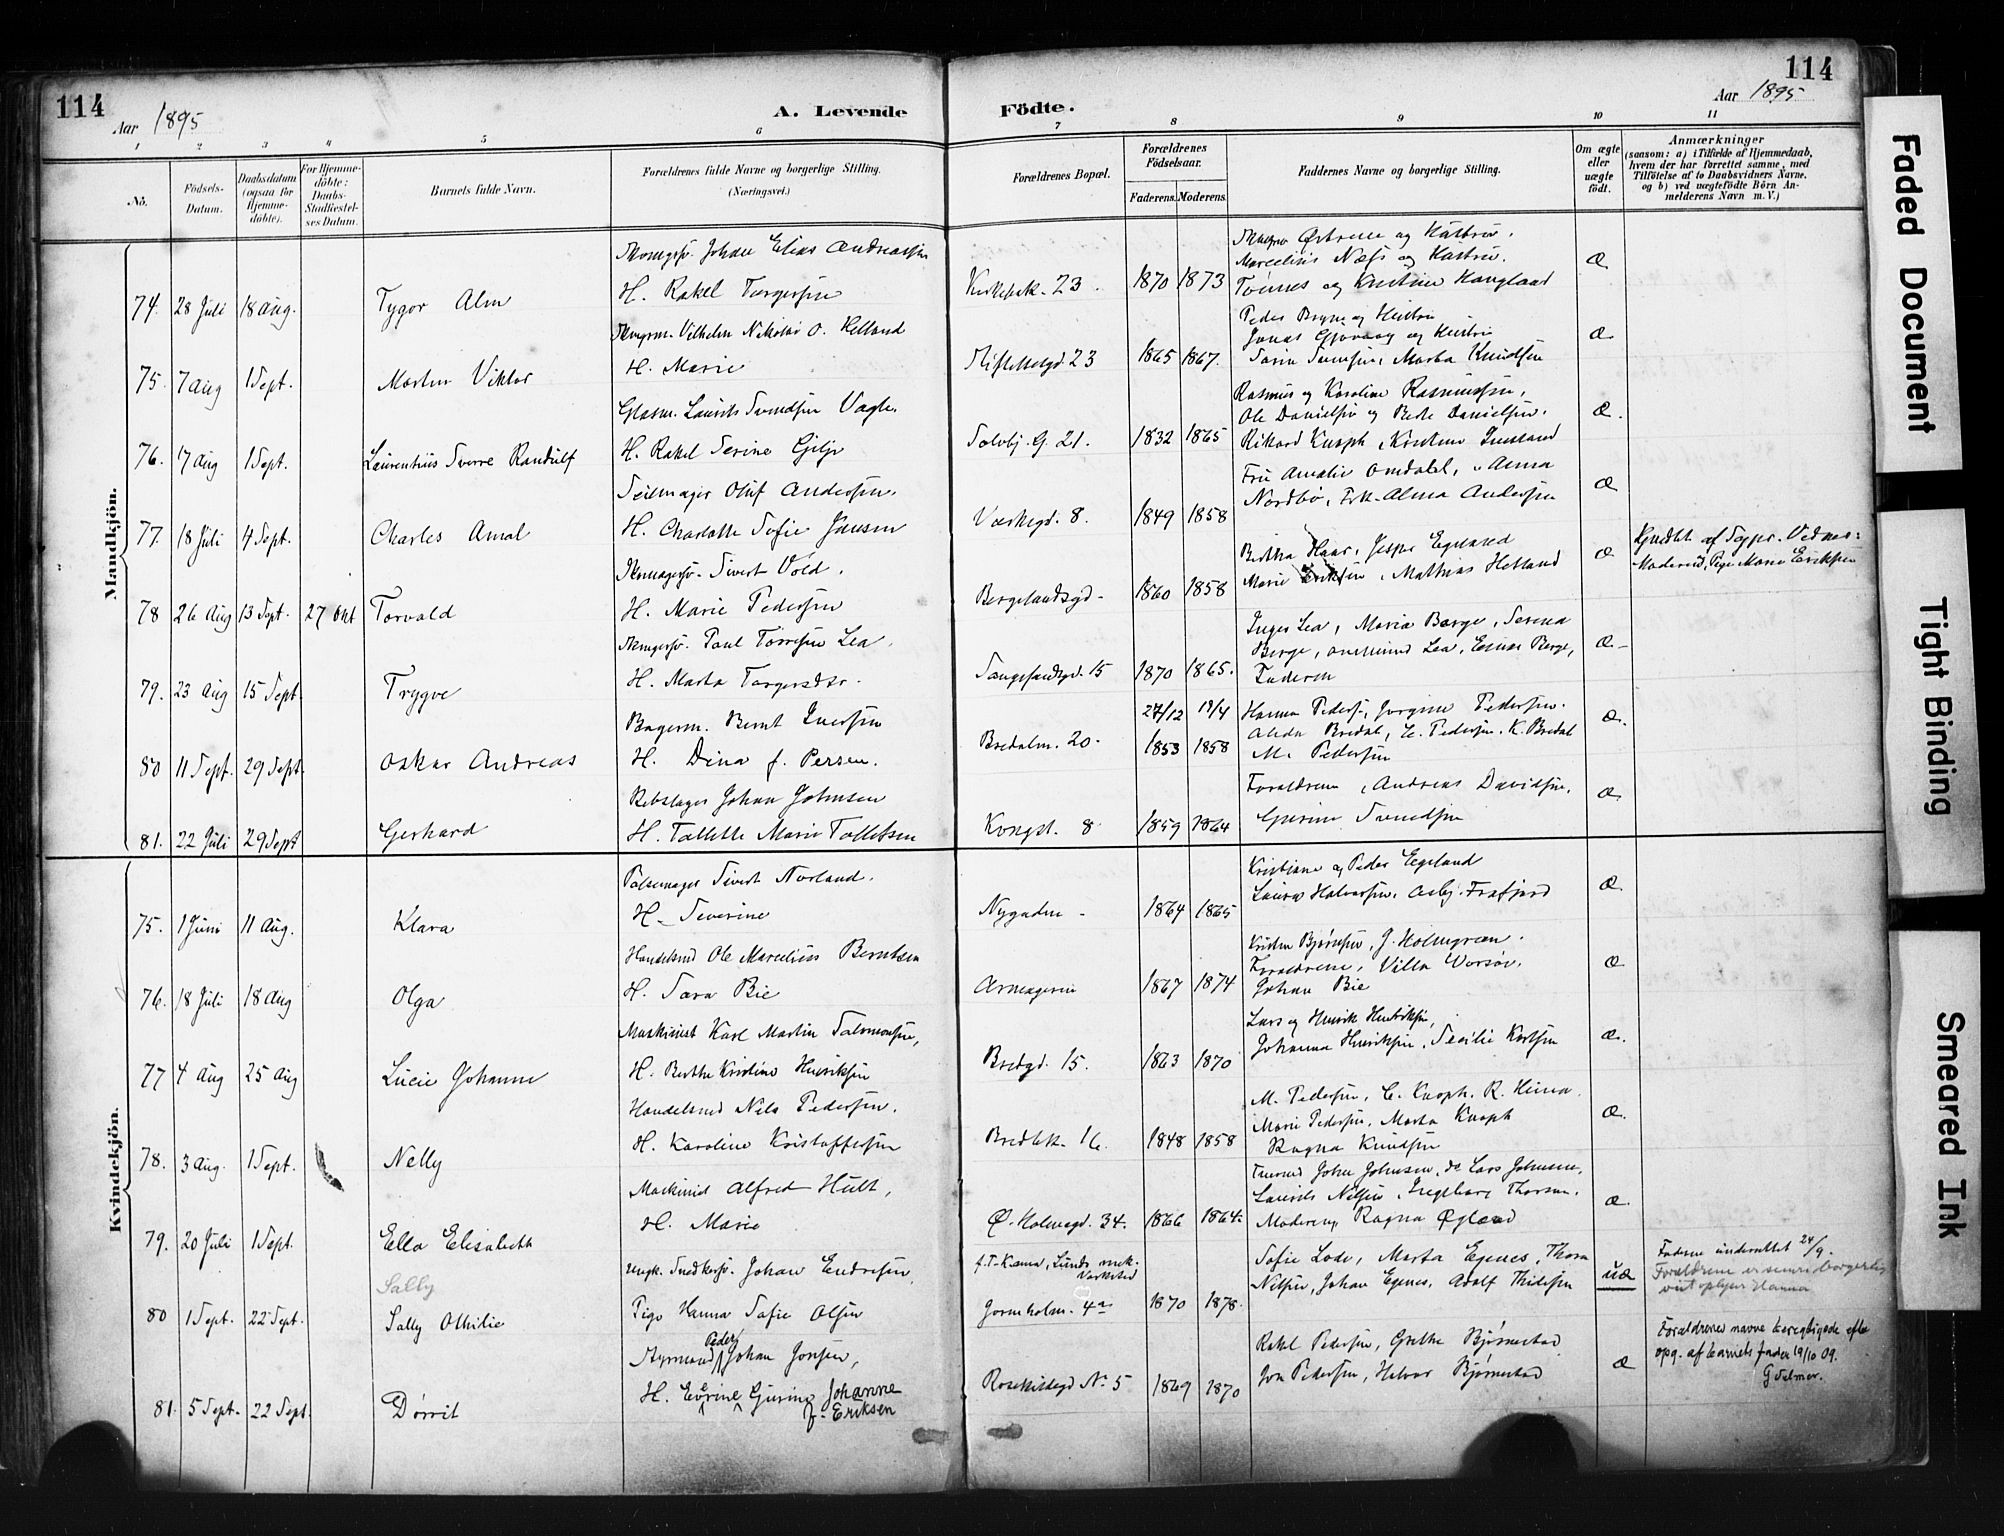 114
114
Aar 1895
A. Levende Födte.
Aar 1895
1 2 3 4 5 6 7 8 9 10 11
No.
Födsels-Datum.
Daabsdatum (ogsaa for Hjemme-döbte).
For Hjemme-döbte: Daabs-Stadfæstel-ses Datum.
Barnets fulde Navn.
Forældrenes fulde Navne og borgerlige Stilling. (Næringsvei.)
Forældrenes Bopæl.
Forældrenes Födselsaar.
Faderens. Moderens.
Faddernes Navne og borgerlige Stilling.
Om ægte eller uægte födt.
Anmærkninger
(saasom: a) i Tilfælde af Hjemmedaab, hvem der har forrettet samme, med Tilföielse af to Daabsvidners Navne, og b) ved uægtefödte Börn An-melderens Navn m. V.)
Mandkjön.
Johan Elias Andreassen
Marcelius Næss og Hustru.
74. 28 Juli 18 Aug. Tygor Alm H. Rakel Torgersen 23. 1870 1873 Tönnes og Kristine Haugland Æ
Vilhelm Nikolai O. Helland
Peder Bryne og Hustru
Jonas Gjovaag og Hustru
75. 7 Aug 1 Sept. Morten Viktor H. Marie 23 1865 1867. Marta Knudsen Æ
Glasm. Laurits Svendsen Vagle.
Rasmus og Karoline Rasmussen,
Ole Danielsen og Berte Danielsen.
76. 17 Aug 1 Sept. Laurentius Sverre Randulf H. Rakel Serine Gilje Sølvbj. G. 21. 1832 1865 Rikard Knoph Æ.
Seilmager Oluf Andersen.
Fru Amalie Omdahl, Anna
Nordbø, Frk. Alma Andersen
77. 18 Juli 4 Sept. Charles Amal H. Charlotte Sofie Jansen 8. 1849 1858 Æ
Sivert Vold.
Bertha Haar, Jesper Egeland
Marie Eriksen, Mathias Hetland
Moderen, Pige Marie Eriksen
78 26 Aug 13 Sept. 27 Okt Torvald H. Marie Pedersen Bergelandsgd. 1860 1858 Æ
Paul Torresen Lea.
Inger Lea, Maria Berge, Serena
Berge, Lea, Einar Berge,
79. 23 Aug 15 Sept. Trygve H. Marta Torgersdtr. 15 1870 1865. Faderen Æ
27/12 19/4
Bagerm. Bernt Iversen
Hanna Peders., Jorgine Pedersen.
Alida Bredal, E. Pedersen. K. Bredal
80 11 Sept. 29 Sept. Oskar Andreas H. Dina f. Persen. Bredalm. 20. 1853 1858 M. Pedersen Æ.
Rebslager Johan Johnsen
Forældrene, Andreas Davidsen,
81. 22 Juli 29 Sept Gerhard H. Tallette Marie Tollefsen Kongst. 8 1859 1864 Gurine Svendsen Æ
Kvindekjön.
Pølsemager Sivert Norland.
Kristiane og Peder Egeland
75. 1 Juni 11 Aug. Klara H. Severine Nygaden 1864 1865 Laura Halvorsen, Asbj. Frafjord Æ
Handelsmd Ole Marcelius Berntsen
Kristen Bjørnsen, J. Holmgreen.
Forældrene, Villa Worsøe.
76. 18 Juli 18 Aug Olga H. Sara Bie Arneageren 1867 1874 Johan Bie Æ
Maskinist Karl Martin Salmonsen,
Lars og Henrik Henriksen,
77 4 Aug 25 Aug Lucie Johanne H. Berthe Kristine Henriksen Bredgd. 15. 1863 1870 Johanna Henriksen, Secilie Karlsen Æ.
Handelsmd Nils Pedersen.
M. Pedersen, C. Knoph. R. Hinna.
Marie Pedersen, Marta Knoph
78. 3 Aug. 1 Sept. Nelly H. Karoline Kristoffersen Bredbk. 16. 1848 1858 Ragna Knudsen Æ.
Maskinist Alfred Hult,
John Johnsen, do Lars Johnsen,
Laurits Nilsen, Ingeborg Thorsen.
79. 20 Juli 1 Sept. Ella Elisabeth H. Marie Ø. Holmegd. 34. 1866 1864. Moderen, Ragna Øgland Æ
Sally
Ungk. Snedkersv. Johan Endresen,
Lunds mek. Værksted
Sofie Lode, Marta Egenes, Thora
Nilsen, Johan Egenes, Adolf Thilesen
80 1 Sept. 22 Sept. Sally Othilie Pige Hanna Sofie Olsen Gormholm. 4a 1870 1878. uæ
Faderen underrettet 24/9.
Forældrene er senere borgerlig
viet oplyser Hanna
Peder
Johan Jonsen,
Rakel Pedersen, Grethe Bjørnestad
Jon Pedersen, Halvor Bjørnestad
81. 5 Sept. 22 Sept. Dorrit H. Evrine Gurine Johanne f. Eriksen Rosekildegd No 5 1869 1870 Æ
Forældrenes navne beregtigede efter
opg. af barnets fader 19/10 09.
Faded Document
Tight Binding
Smeared Ink